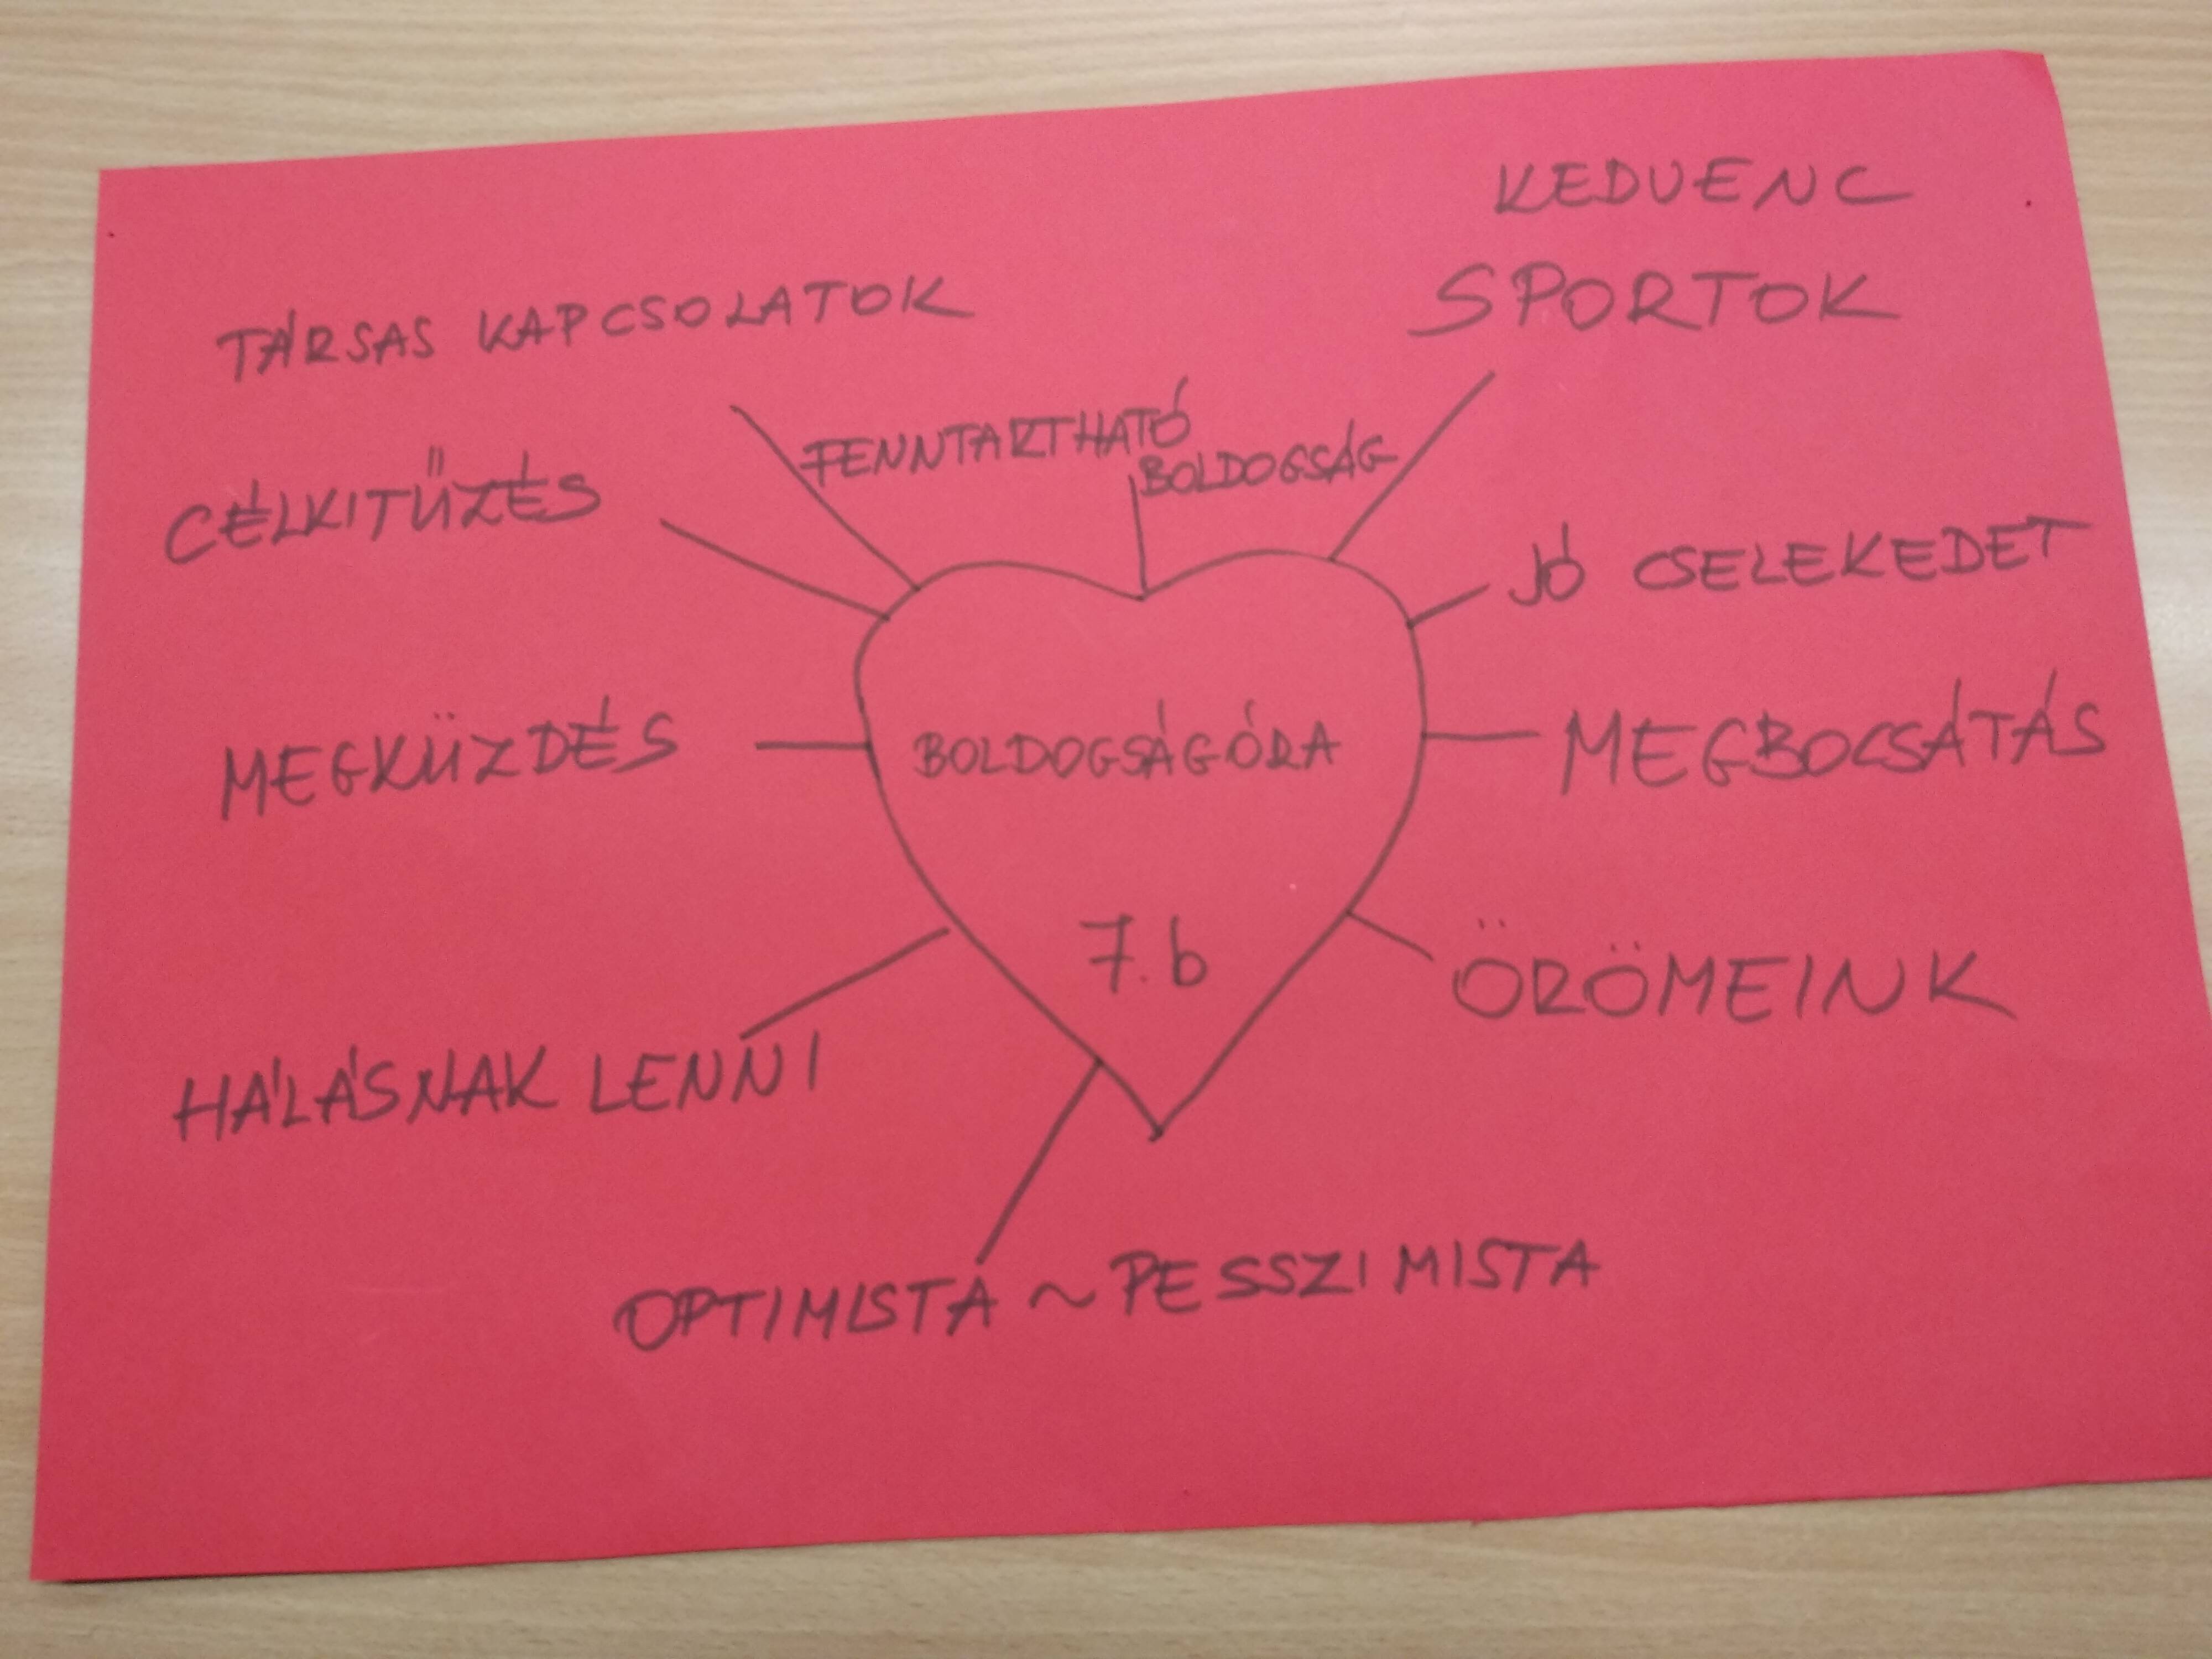 KEDVENC
SPORTOK
TÁRSAS KAPCSOLATOK
FENNTARTHATÓ
BOLDOGSÁG
CÉLKITŰZÉS
JÓ CSELEKEDET
MEGKÜZDÉS
BOLDOGSÁGÓRA
MEGBOCSÁTÁS
7.b
ÖRÖMEINK
HÁLÁSNAK LENNI
OPTIMISTA ~ PESSZIMISTA